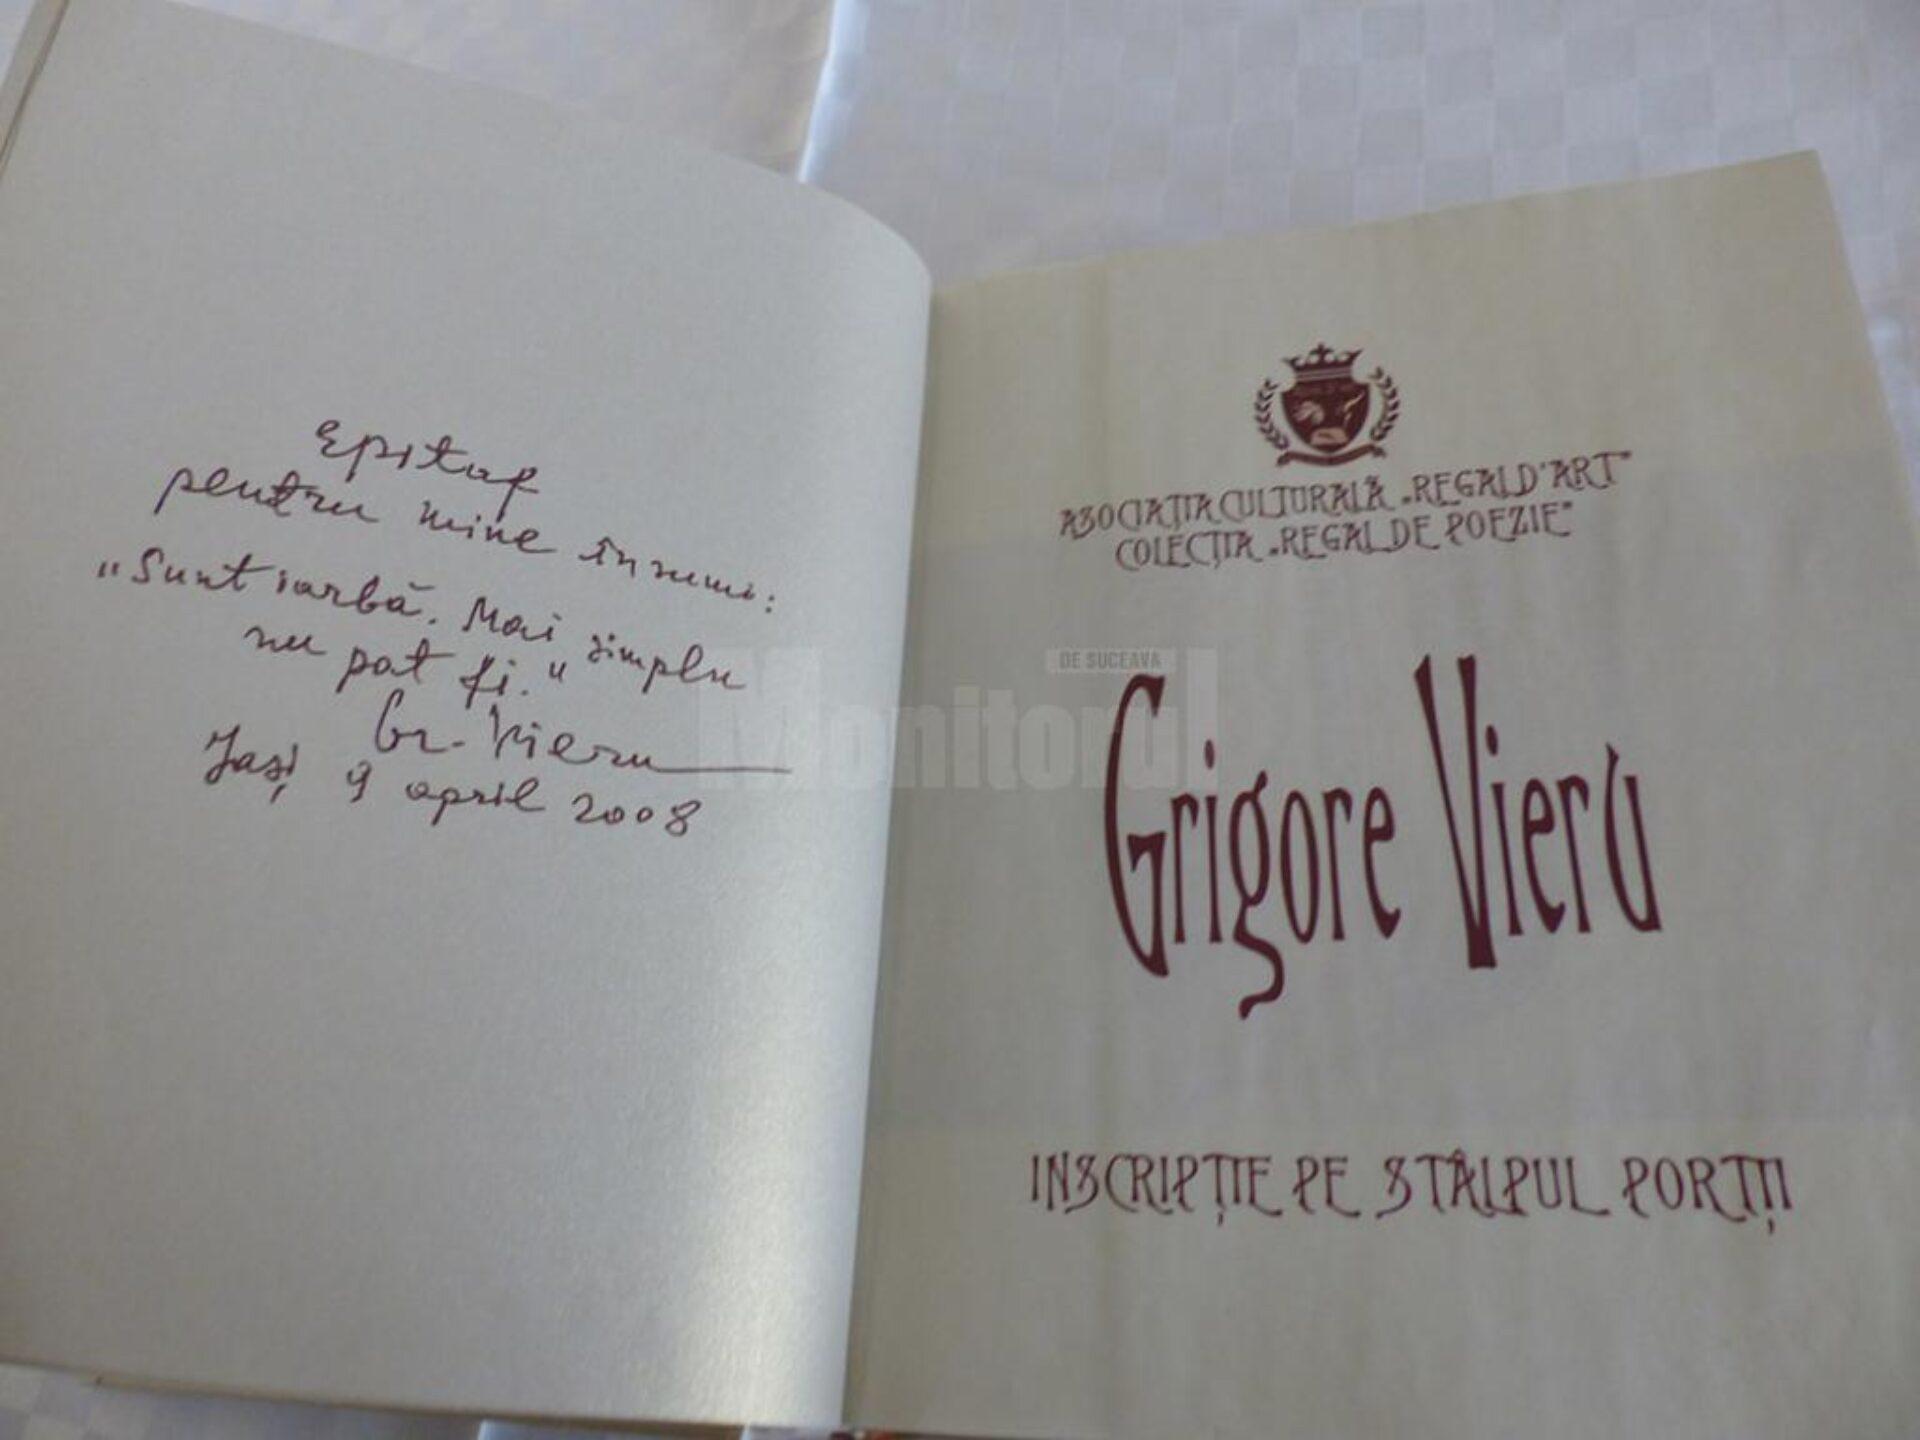 Epitaf
pentru mine însumi:
„Sunt iarbă. Mai simplu
nu pot fi."
Gr. Vieru
Iași 9 april 2008
ASOCIAȚIA CULTURALĂ „REGAL D'ART"
COLECȚIA „REGAL DE POEZIE"
Monitorul
DE SUCEAVA
Grigore Vieru
INSCRIPȚIE PE STÂLPUL PORȚII